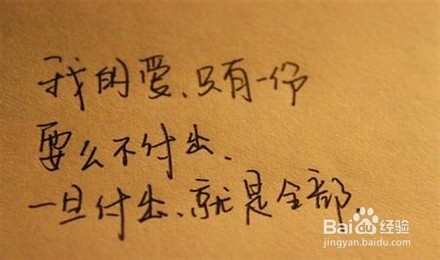 我的爱、只有一份
要么不付出、
一旦付出、就是全部.
Baidu 经验
jingyan.baidu.com